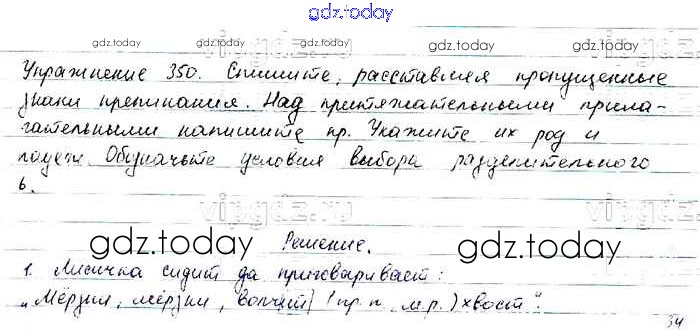 gdz.today
gdz.today gdz.today gdz.today
Упражнение 350. Спишите, расставляя пропущенные
знаки препинания. Над притяжательными прила-
гательными напишите пр. Укажите их род и
падеж. Обозначьте условия выбора разделительного
ь.
vipgdz.ru vipgdz.ru
gdz.today gdz.today
Решение.
1. Лисичка сидит да приговаривает:
„Мёрзни, мёрзни, волчий (пр. п. м.р.) хвост".
34